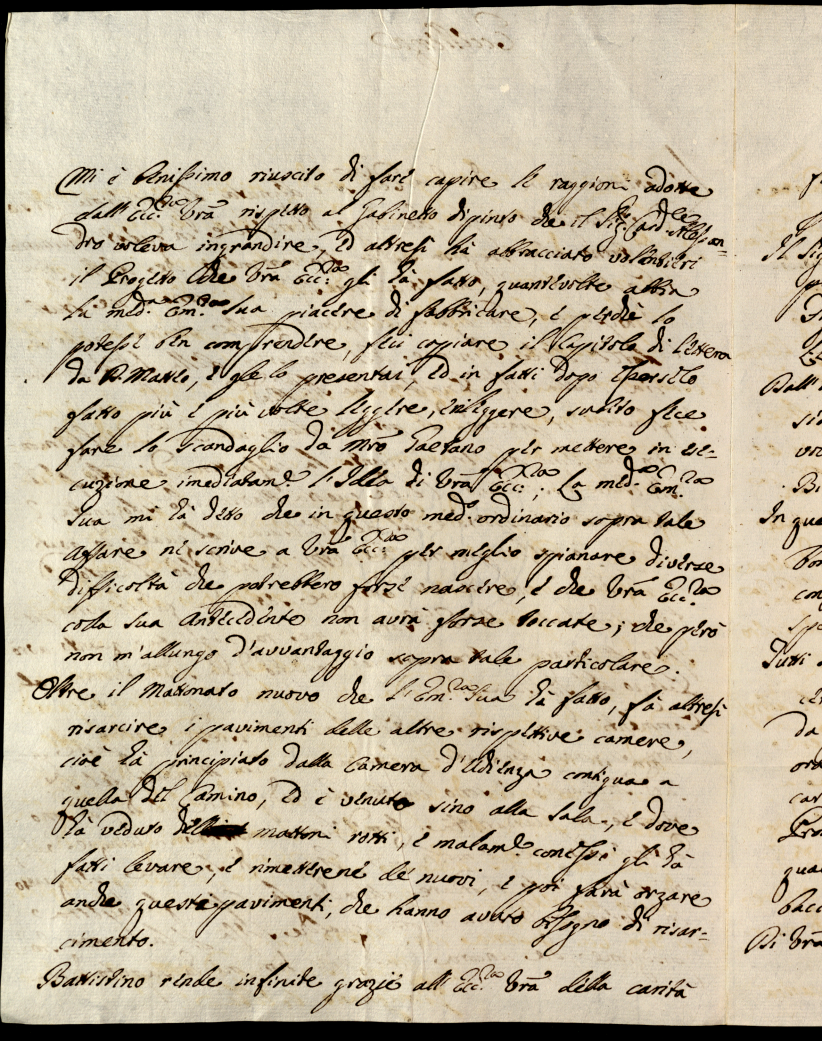 Mi è benissimo riuscito di fare capire le raggioni adotte
dall' Ecc.za Vrã rispetto al Gabinetto dipinto che il Sig.r Card.le Alessan=
dro voleva ingrandire, ed altresì hà abbracciato volentieri
il Progetto che Vrã Ecc.za gli hà fatto, quantevolte abbia
la med.a Em.za Sua piacere di fabbricare, e perchè lo
potesse ben comprendere, feci copiare il Capitolo di lettera
da P. Matteo, e glie lo presentai, ed in fatti dopo
fatto più e più volte leggere, e rileggere, subito fece
fare lo scandaglio da Mro Gaetano per mettere in ese=
cuzione imediatam.e l'Idea di Vrã Ecc.za; La med.a Em.za
Sua mi hà detto che in questo med.o ordinario sopra tale
affare ne scrive a Vrã Ecc.za per meglio spianare diverse
difficoltà che potrebbero forse nascere, e che Vrã Ecc.za
colla sua Antecedente non avrà forse toccate; che però
non m'allungo d'avvantaggio sopra tale particolare.
Oltre il Mattonato nuovo che l'Em.za Sua hà fatto, fà altresì
risarcire i pavimenti delle altre rispettive camere,
cioè hà principiato dalla Camera d'Udienza contigua a
quella del Camino, ed è venuto sino alla Sala, e dove
hà veduto mattoni rotti, e malam.e gli hà
fatti levare, e rimetterene de' nuovi, e poi farà orzare
anche questi pavimenti, che hanno avuto bisogno di risar=
cimento.
Battistino rende infinite grazie all' Ecc.za Vrã della carità